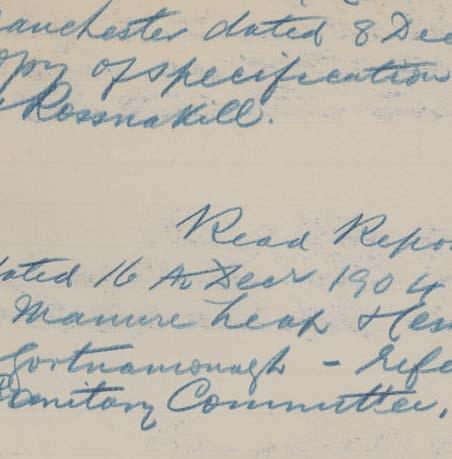 anchester dated 8 Dec
opy of specification
Rossnakill.
Read Repo
dated 16th Decr 1904
Manure heap
– refe
Sanitary Committee.